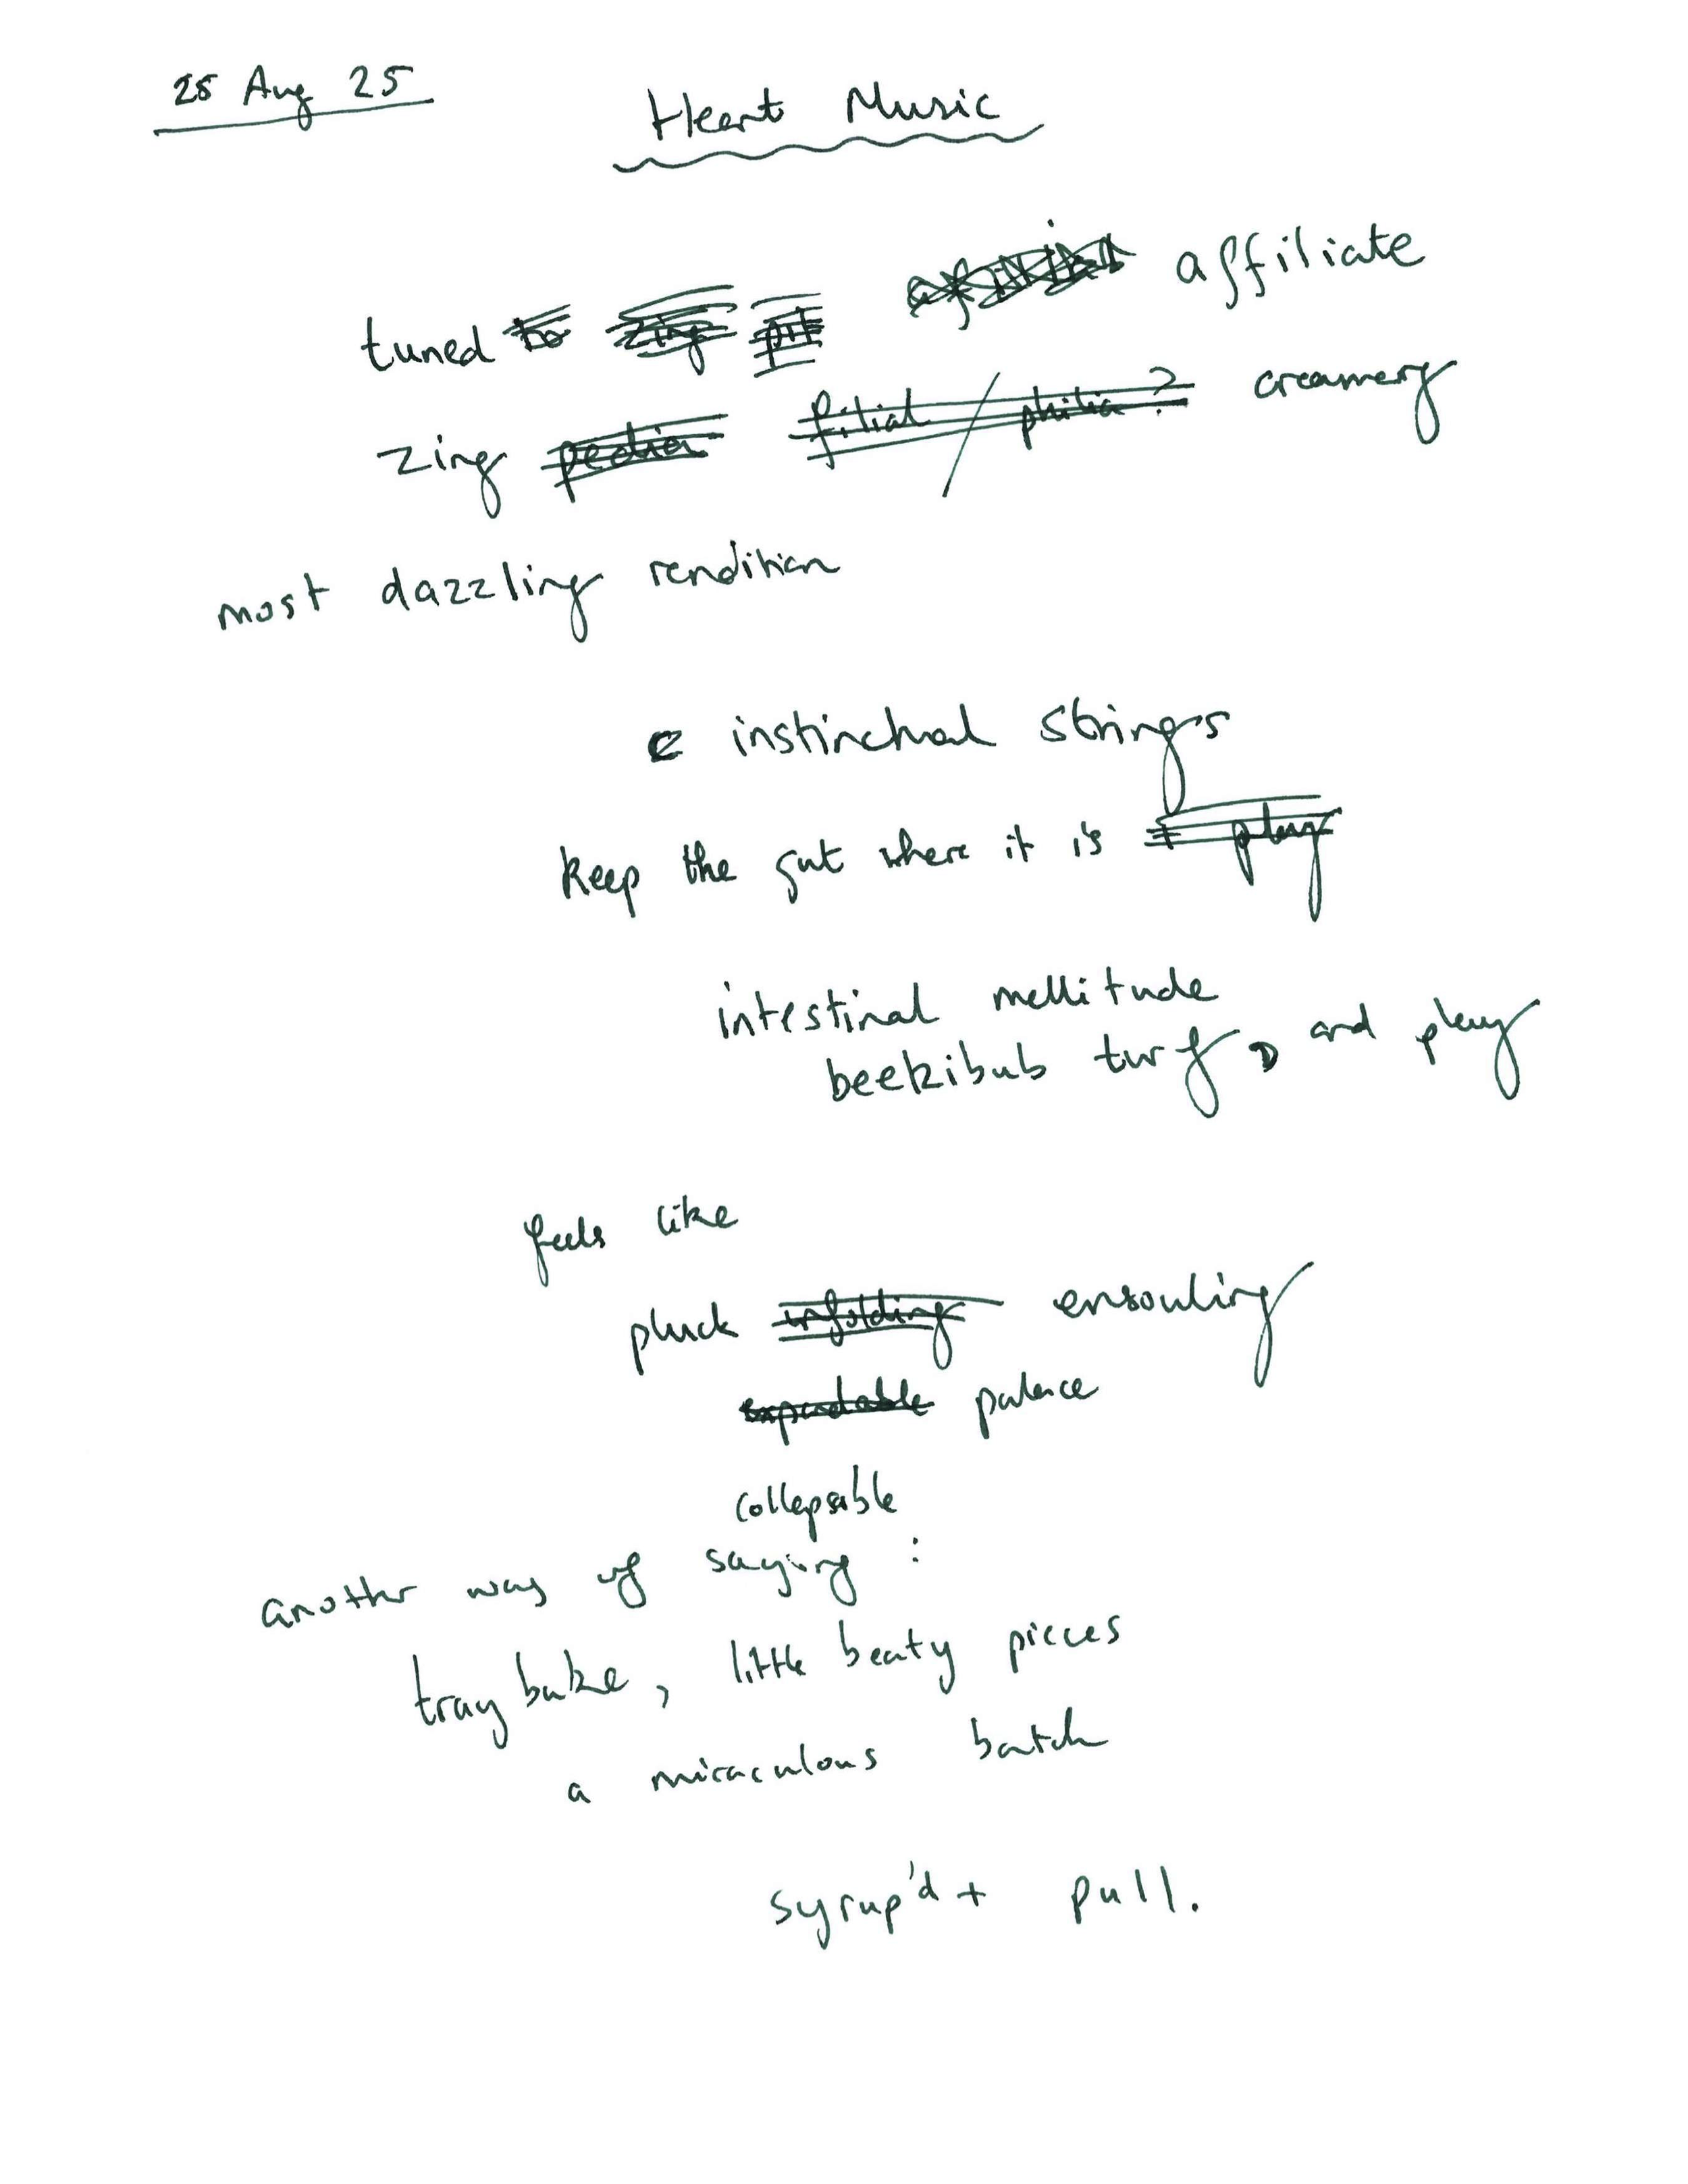 25 Aug 25
Heart Music
tuned to zing pit affiliate
zing filial / philia? creamery
most dazzling rendition
instinctual strings
keep the gut where it is I play
intestinal mellitude
beelzibub turf, and play
feels like
pluck unfolding ensouling
expandable palace
collapsable
another way of saying :
traybake, little beaty pieces
a miraculous batch
syrup'd + pull.